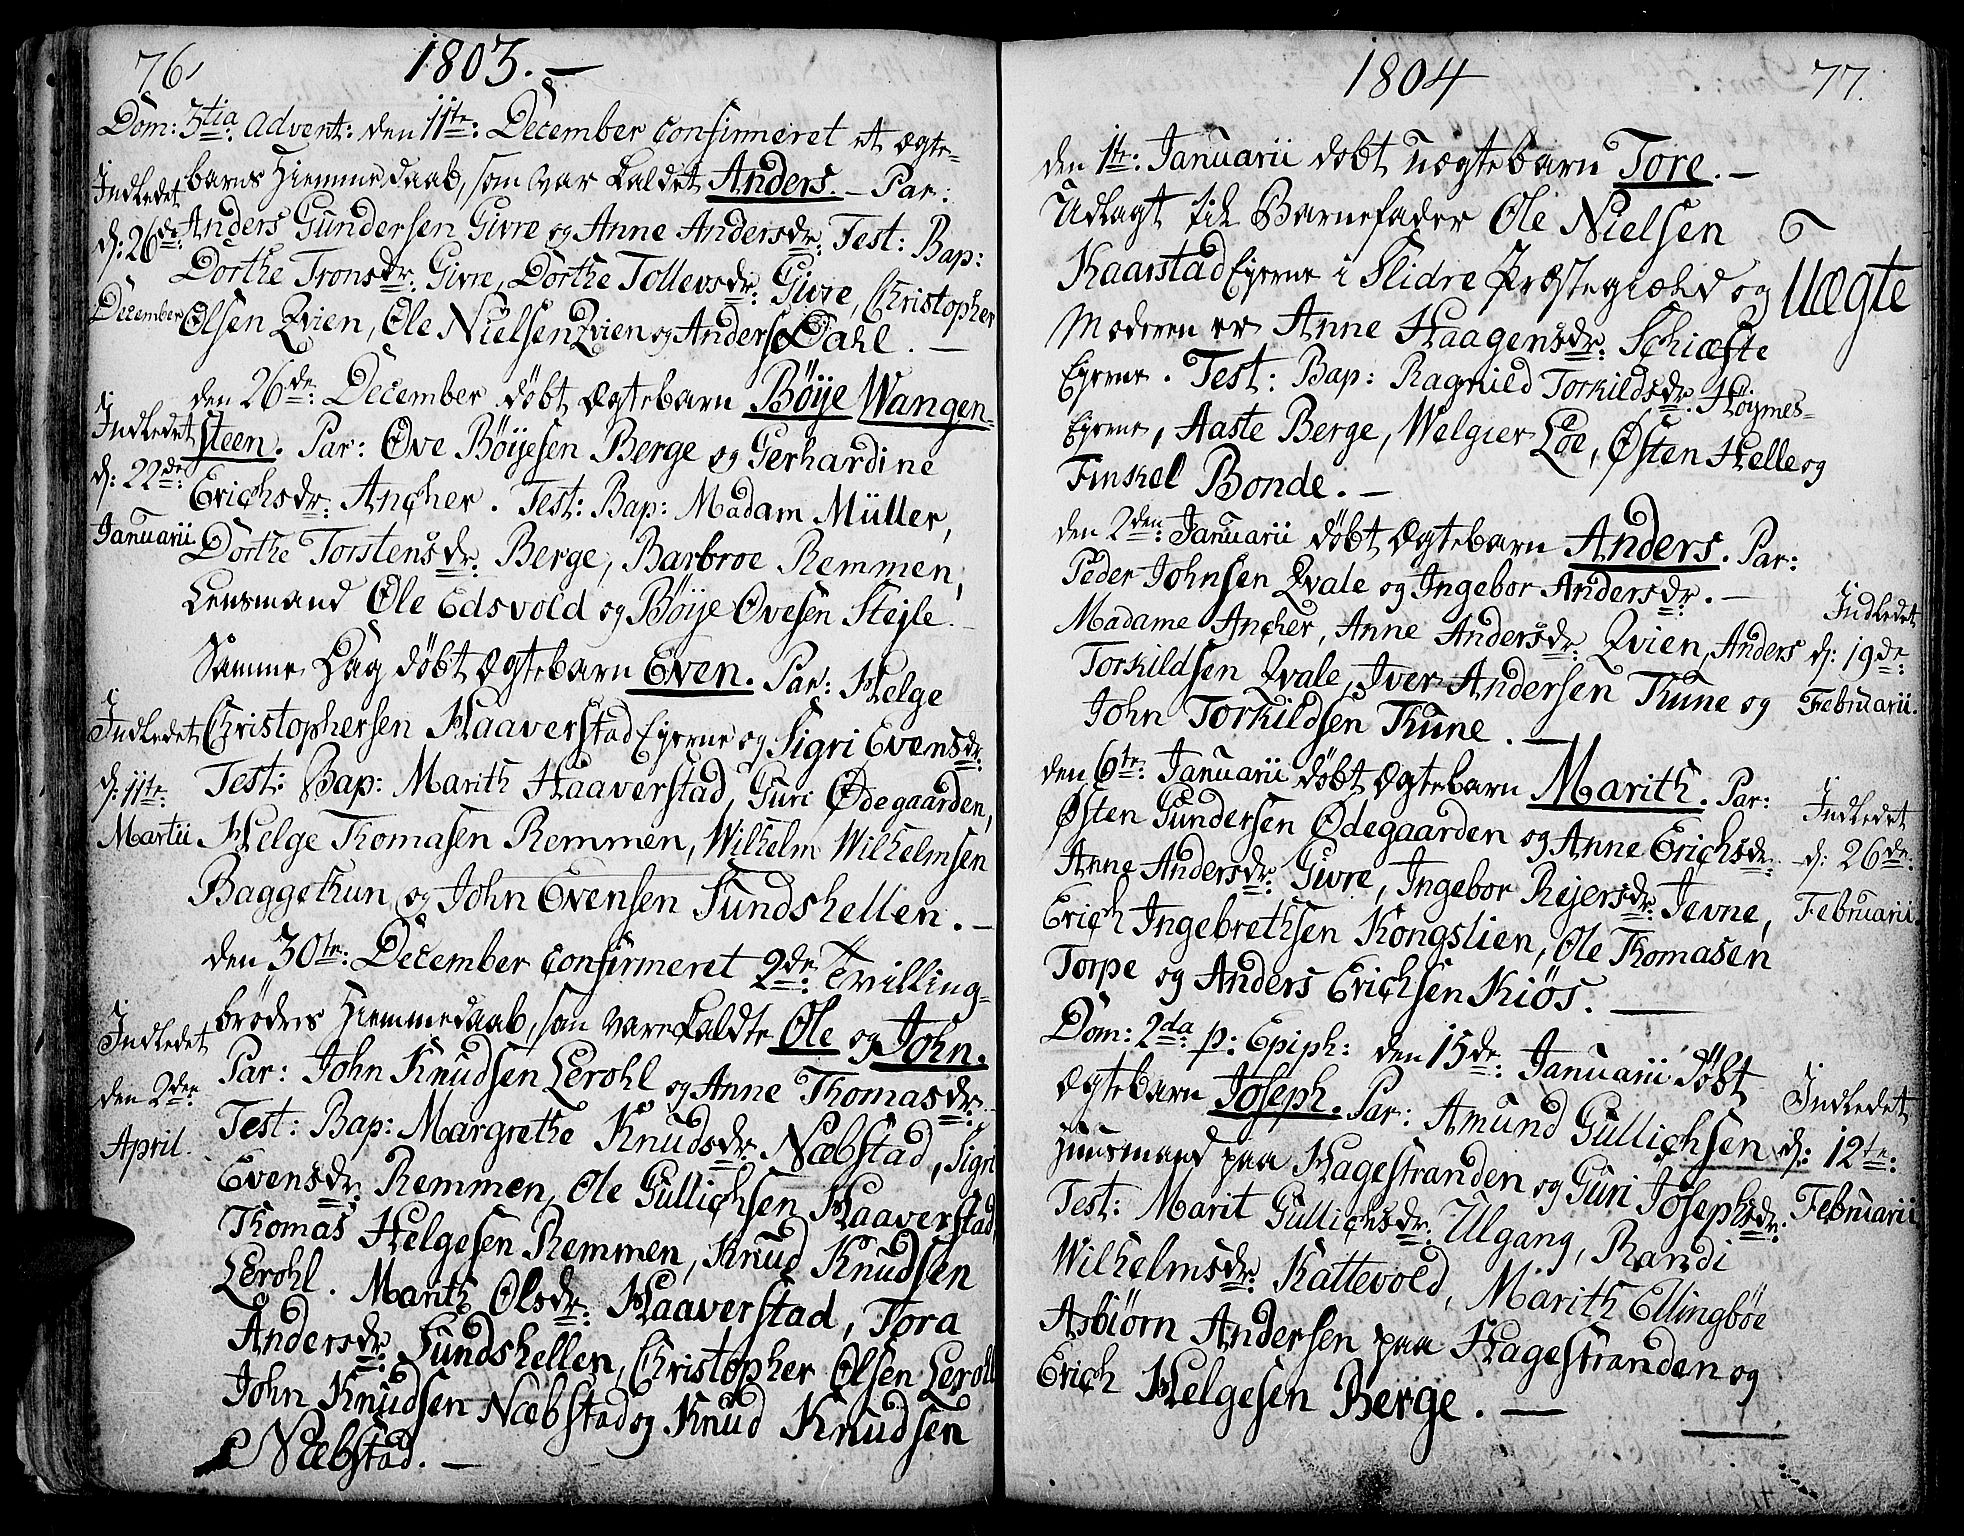 76
1803. —
Dom: 3tia advent: den 11te: December confirmeret et ægte-
barns Hiemmedaab, som var kaldet Anders. — Par:
Anders Gundersen Givre og Anne Andersdr: Test: Bap:
Dorthe Tronsdr: Givre, Dorthe Tollevsdr: Givre, Christopher
Olsen Qvien, Ole Nielsen Qvien og Anders Dahl. —
Indledet
d: 26de:
December
den 26de: December døbt ægtebarn Böije Wangen-
steen. Par: Ove Böijesen Berge og Gerhardine
Erichsdr: Ancher. Test: Bap: Madam Müller,
Dorthe Torstensdr: Berge, Barbroe Remmen,
Lensmand Ole Edsvold og Böije Ovesen Stejle.
Indledet
d: 22de:
Januarii
Samme Dag døbt ægtebarn Even. Par: Helge
Christophersen Haaverstad Eyerne og Sigri Evensdr:
Test: Bap: Marith Haaverstad, Guri Ødegaarden,
Helge Thomasen Remmen, Wilhelm Wilhelmsen
Baggethun og John Evensen Sundshellen. —
Indledet
d: 11te:
Martii
den 30te: December confirmeret 2de Tvilling-
brødres Hiemmedaab, som vare kaldte Ole og John.
Par: John Knudsen Lerohl og Anne Thomasdr:
Test: Bap: Margrethe Knudsdr: Næbstad, Sigri
Evensdr: Remmen, Ole Gullichsen Haaverstad,
Thomas Helgesen Remmen, Knud Knudsen
Lerohl. Marith Olsdr: Haaverstad, Tora
Andersdr: Sundshellen, Christopher Olsen Lerohl
John Knudsen Næbstad og Knud Knudsen
Næbstad. —
Indledet
den 2den
April.
1804
77.
den 1te: Januarii døbt uægtebarn Tore. —
Udlagt til Barnefader Ole Nielsen
Kaarstad Eyerne i Slidre Præstegield og
Moderen er Anne Haagensdr: Schiæfte
Eyerne. Test: Bap: Ragnild Torkildsdr: Høymes-
Eyerne, Aaste Berge, Welgier Loe, Østen Helle og
Finkel Bonde. —
Uægte
den 2den: Januarii døbt ægtebarn Anders. Par:
Peder Johnsen Qvale og Ingebor Andersdr: —
Madame Ancher, Anne Andersdr: Qvien, Anders
Torkildsen Qvale, Iver Andersen Thune og
John Torkildsen Thune. —
Indledet
d: 19de:
Februarii.
den 6te: Januarii døbt ægtebarn Marith. Par:
Østen Gundersen Ødegaarden og Anne Erichsdr:
Anne Andersdr: Givre, Ingebor Rejersdr: Jevne,
Erich Ingebrethsen Kongslien, Ole Thomasen
Torpe og Anders Erichsen Kiös. —
Indledet
d: 26de:
Februarii.
Dom: 2da p: Epiph: den 15de: Januarii døbt
ægtebarn Joseph. Par: Amund Gullichsen
Huusmand paa Hagestranden og Guri Josephsdr:
Test: Marit Gullichsdr: Ulgang, Randi
Wilhelmsdr: Kattevold, Marith Ellingböe
Asbiørn Andersen paa Hagestranden og
Erich Helgesen Berge. —
Indledet
d: 12te:
Februarii